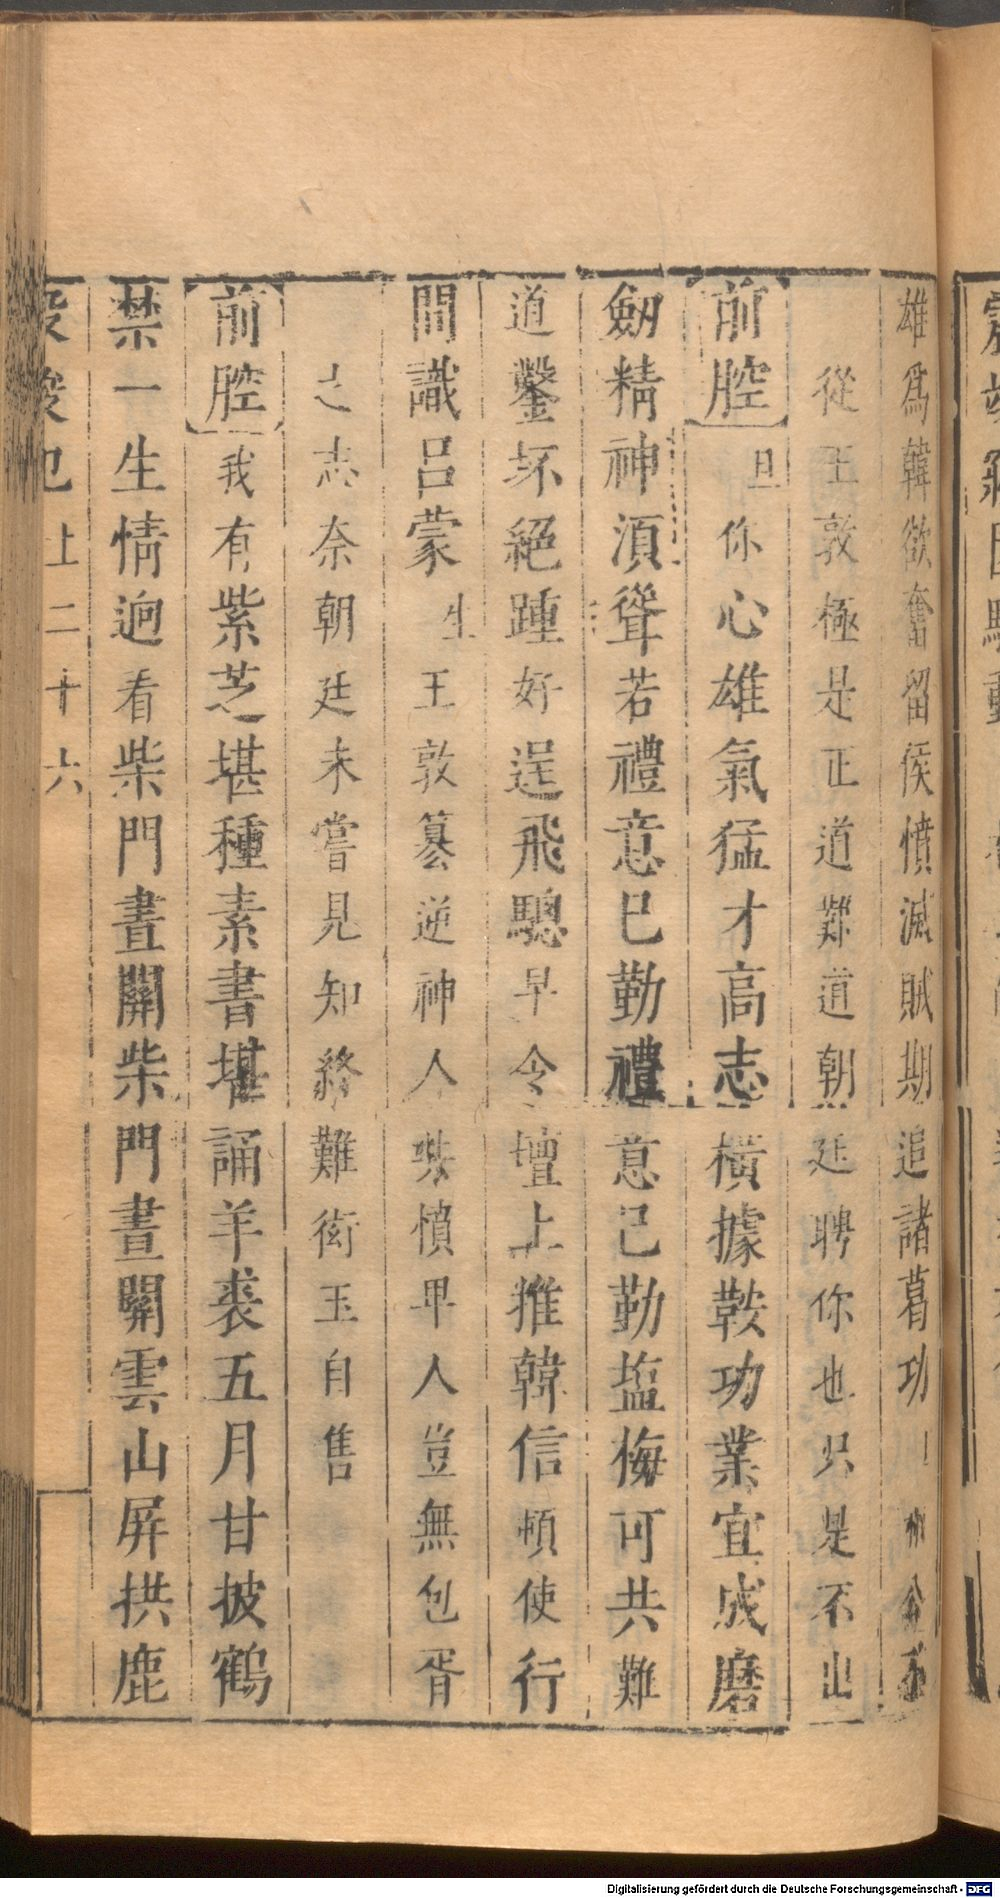 雄為韓欲奮留侯憤滅賊期追諸葛功
從王敦極是正道難道朝廷聘你也只是不出
前腔 旦 你心雄氣猛才高志橫據鞍功業宜成磨
劔精神湏聳若禮意巳勤禮意巳勤塩梅可共難
道鑿坏絕踵好逞飛驄早令壇上推韓信頓使行
間識呂蒙 生 王敦簒逆神人共憤甲人豈無包胥
之志奈朝廷未嘗見知終難衒玉自售
前腔 我有紫芝堪種素書堪誦羊裘五月甘披鶴
禁一生情逈看柴門晝關柴門晝關雲山屏拱鹿
上二十六
Digitalisierung gefördert durch die Deutsche Forschungsgemeinschaft - DFG